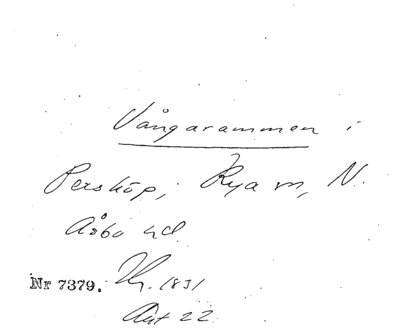 Vångarammen i
Perstorp, Rya m, N.
Åsbo hd.
Nr 7379. Hg. 1831
Akt 22